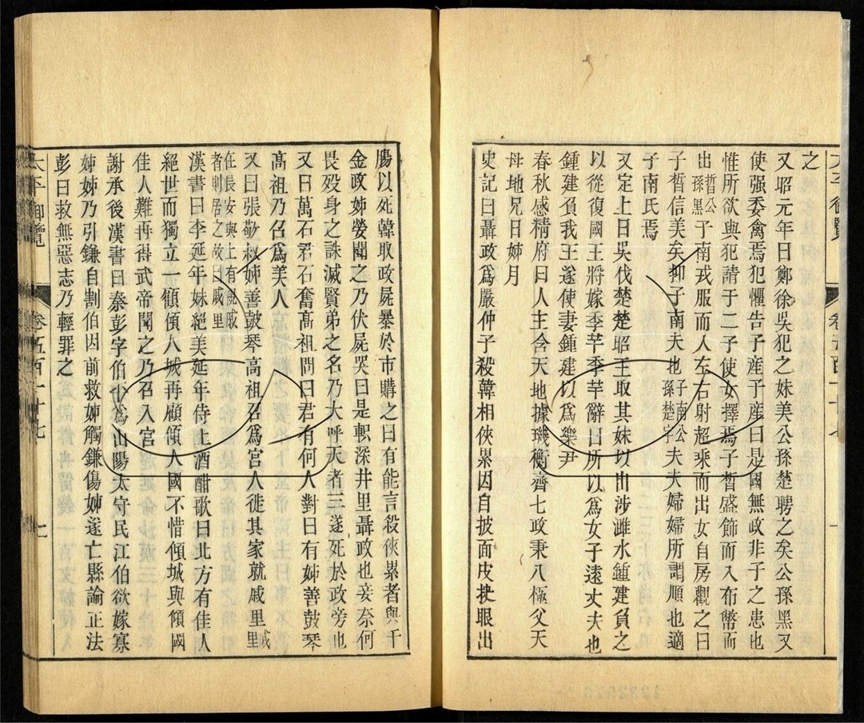 之
又昭元年曰鄭徐吳犯之妹美公孫楚聘之矣公孫黑又
使强委禽焉犯懼告子産子産曰是國無政非子之患也
惟所欲與犯請于二子使女擇焉子晳盛飾而入布幣而
出子南戎服而入左右射超乘而出女自房觀之曰
子晳信美矣抑子南夫也夫夫婦婦所謂順也適
子南氏焉
又定上曰吳伐楚楚昭王取其妹以出涉雎水鍾建負之
以從復國王將嫁季芊季芊辭曰所以爲女子遠丈夫也
鍾建負我王遂使妻鍾建以爲樂尹
春秋感精府曰人主含天地據璣衡齊七政秉八極父天
母地兄日姊月
史記曰聶政爲嚴仲子殺韓相俠累因自披面皮抉眼出
腸以死韓取政屍暴於市購之曰有能言殺俠累者與千
金政姊嫈聞之乃伏屍哭曰是軹深井里聶政也妾奈何
畏殁身之誅滅賢弟之名乃大呼天者三遂死於政旁也
又曰萬石君石奮高祖問曰君有何人對曰有姊善鼓琴
高祖乃召爲美人
又曰張敖姊善鼓琴高祖召爲宮人徙其家就戚里
漢書曰李延年妹絕美延年侍上酒酣歌曰北方有佳人
絕世而獨立一顧傾人城再顧傾人國不惜傾城與傾國
佳人難再得武帝聞之乃召入宮
謝承後漢書曰秦彭字伯平爲山陽太守民江伯欲嫁寡
姊姊乃引鎌自割伯因前救姊觸鎌傷姊遂亡縣論正法
彭曰救無惡志乃輕罪之
太平御覽 卷五百一十七